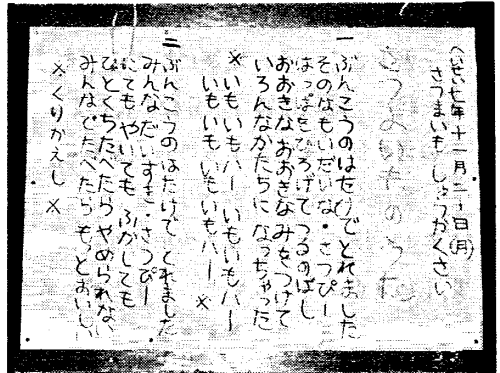 へいせい七年十一月二十日(月)
さつまいも・しゅうかくさい
さつまいものうた
一 ぶんこうのはたけでとれました
そのなもいだいな・さつぴー
はっぱをひろげてつるのばし
おおきなおおきなみをつけて
いろんなかたちになっちゃった
※いもいもパー いもいもパー
いもいも いもいもパー ※
二 ぶんこうのはたけでとれました
みんなだいすき・さつぴー
にても やいても ふかしても
ひとくちたべたらやめられない
みんなでたべたらもっとおいしい
※くりかえし※